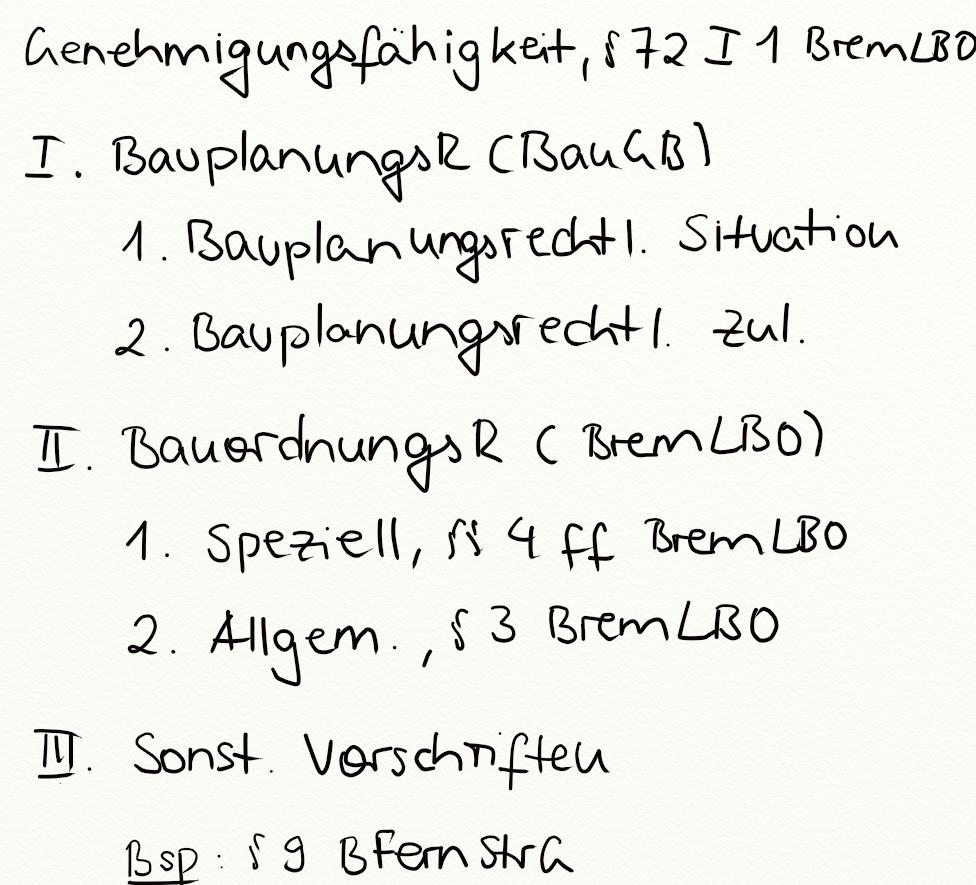 Genehmigungsfähigkeit, § 72 I 1 BremLBO
I. BauplanungsR (BauGB)
1. Bauplanungsrechtl. Situation
2. Bauplanungsrechtl. Zul.
II. BauordnungsR (BremLBO)
1. Speziell, §§ 4 ff BremLBO
2. Allgem., § 3 BremLBO
III. Sonst. Vorschriften
Bsp: § 9 BFernStrG